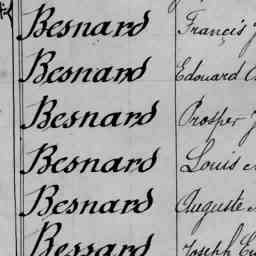 Besnard François J
Besnard Edouard
Besnard Prosper J
Besnard Louis
Besnard Auguste
Bessard Joseph